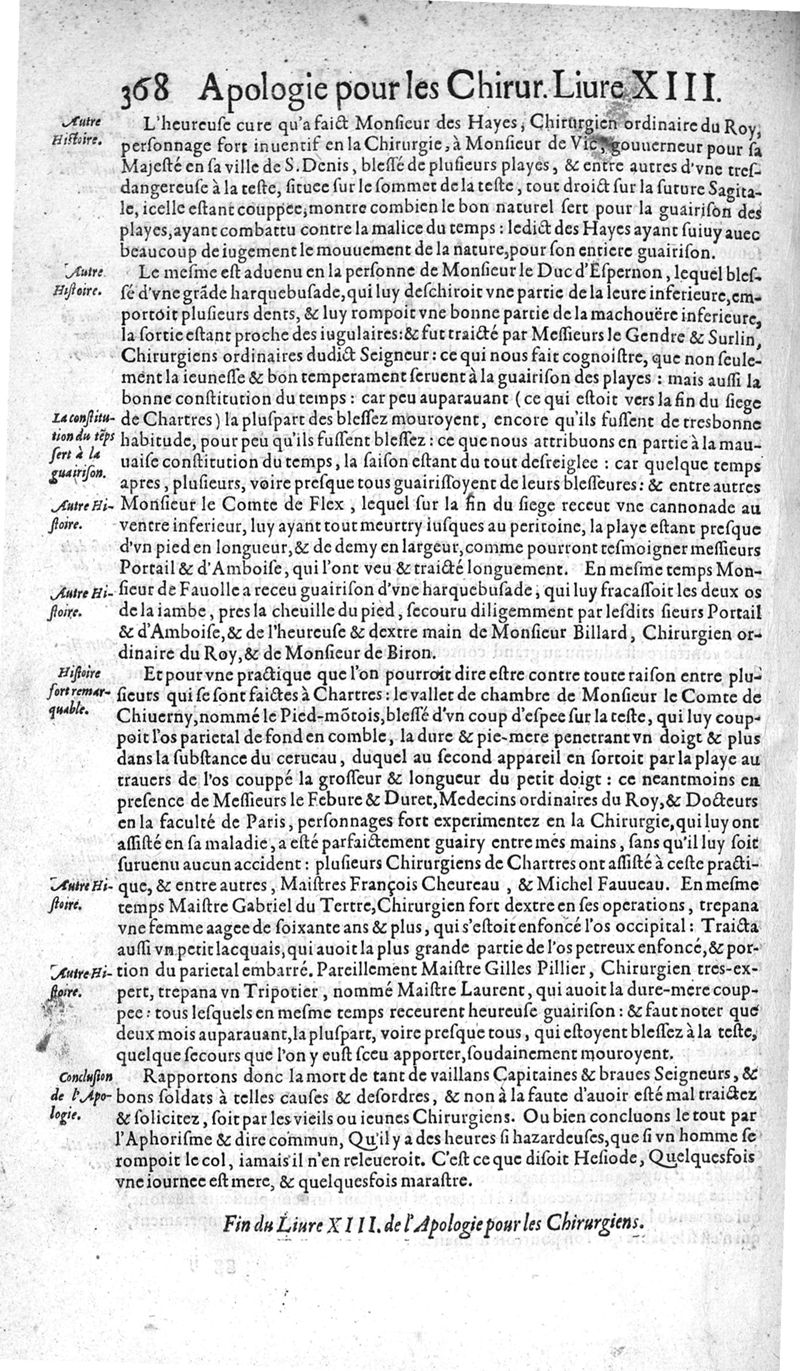 368 Apologie pour les Chirur. Liure XIII.
Autre
Histoire.
L'heureuse cure qu'a faict Monsieur des Hayes, Chirurgien ordinaire du Roy,
personnage fort inuentif en la Chirurgie, à Monsieur de Vic, gouuerneur pour sa
Majesté en sa ville de S. Denis, blessé de plusieurs playes, & entre autres d'vne tres-
dangereuse à la teste, situee sur le sommet de la teste, tout droict sur la suture Sagita-
le, icelle estant couppee, montre combien le bon naturel sert pour la guairison des
playes, ayant combattu contre la malice du temps : ledict des Hayes ayant suiuy auec
beaucoup de iugement le mouuement de la nature, pour son entiere guairison.
Autre
Histoire.
Le mesme est aduenu en la personne de Monsieur le Duc d'Espernon, lequel bles-
sé d'vne grãde harquebusade, qui luy deschiroit vne partie de la leure inferieure, em-
portoit plusieurs dents, & luy rompoit vne bonne partie de la machouëre inferieure,
la sortie estant proche des iugulaires: & fut traicté par Messieurs le Gendre & Surlin,
Chirurgiens ordinaires dudict Seigneur : ce qui nous fait cognoistre, que non seule-
ment la ieunesse & bon temperament seruent à la guairison des playes : mais aussi la
bonne constitution du temps : car peu auparauant ( ce qui estoit vers la fin du siege
La constitu-
tion du tẽps
sert à la
guairison.
de Chartres ) la pluspart des blessez mouroyent, encore qu'ils fussent de tresbonne
habitude, pour peu qu'ils fussent blessez : ce que nous attribuons en partie à la mau-
uaise constitution du temps, la saison estant du tout desreiglee : car quelque temps
apres, plusieurs, voire presque tous guairissoyent de leurs blesseures : & entre autres
Autre Hi-
stoire.
Monsieur le Comte de Flex, lequel sur la fin du siege receut vne cannonade au
ventre inferieur, luy ayant tout meurtry iusques au peritoine, la playe estant presque
d'vn pied en longueur, & de demy en largeur, comme pourront tesmoigner messieurs
Portail & d'Amboise, qui l'ont veu & traicté longuement. En mesme temps Mon-
Autre Hi-
stoire.
sieur de Fauolle a receu guairison d'vne harquebusade, qui luy fracassoit les deux os
de la iambe, pres la cheuille du pied, secouru diligemment par lesdits sieurs Portail
& d'Amboise, & de l'heureuse & dextre main de Monsieur Billard, Chirurgien or-
dinaire du Roy, & de Monsieur de Biron.
Histoire
fort remar-
quable.
Et pour vne practique que l'on pourroit dire estre contre toute raison entre plu-
sieurs qui se sont faictes à Chartres : le vallet de chambre de Monsieur le Comte de
Chiuerny, nommé le Pied-mõtois, blessé d'vn coup d'espee sur la teste, qui luy coup-
poit l'os parietal de fond en comble, la dure & pie-mere penetrant vn doigt & plus
dans la substance du cerueau, duquel au second appareil en sortoit par la playe au
trauers de l'os couppé la grosseur & longueur du petit doigt : ce neantmoins en
presence de Messieurs le Febure & Duret, Medecins ordinaires du Roy, & Docteurs
en la faculté de Paris, personnages fort experimentez en la Chirurgie, qui luy ont
assisté en sa maladie, a esté parfaictement guairy entre mes mains, sans qu'il luy soit
suruenu aucun accident : plusieurs Chirurgiens de Chartres ont assisté à ceste practi-
Autre Hi-
stoire.
que, & entre autres, Maistres François Cheureau , & Michel Fauueau. En mesme
temps Maistre Gabriel du Tertre, Chirurgien fort dextre en ses operations, trepana
vne femme aagee de soixante ans & plus, qui s'estoit enfoncé l'os occipital : Traicta
aussi vn petit lacquais, qui auoit la plus grande partie de l'os petreux enfoncé, & por-
Autre Hi-
stoire.
tion du parietal embarré. Pareillement Maistre Gilles Pillier, Chirurgien tres-ex-
pert, trepana vn Tripotier, nommé Maistre Laurent, qui auoit la dure-mere coup-
pee : tous lesquels en mesme temps receurent heureuse guairison : & faut noter que
deux mois auparauant, la pluspart, voire presque tous, qui estoyent blessez à la teste,
quelque secours que l'on y eust sceu apporter, soudainement mouroyent.
Conclusion
de l'Apo-
logie.
Rapportons donc la mort de tant de vaillans Capitaines & braues Seigneurs, &
bons soldats à telles causes & desordres, & non à la faute d'auoir esté mal traictez
& solicitez, soit par les vieils ou ieunes Chirurgiens. Ou bien concluons le tout par
l'Aphorisme & dire commun, Qu'il y a des heures si hazardeuses, que si vn homme se
rompoit le col, iamais il n'en releueroit. C'est ce que disoit Hesiode, Quelquesfois
vne iournee est mere, & quelquesfois marastre.
Fin du Liure XIII. de l'Apologie pour les Chirurgiens.